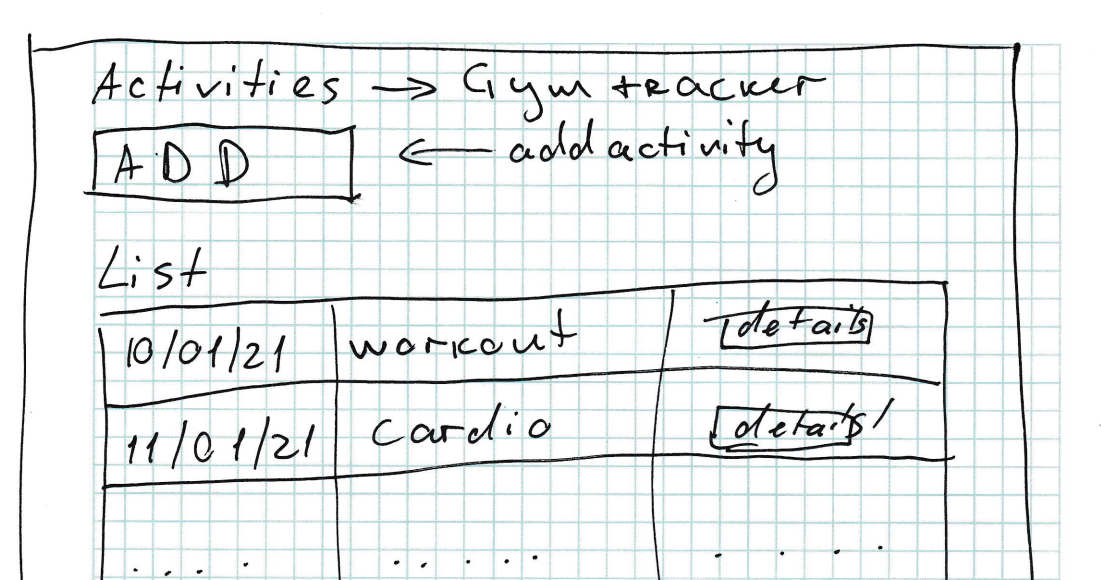 Activities → Gym tracker
ADD ← add activity
List
10/01/21 workout details
11/01/21 cardio details
.... ...... ....